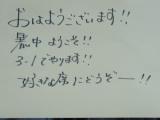 おはようございます!!
暑中 ようこそ!!
3-1でやります!!
好きな席にどうぞー!!